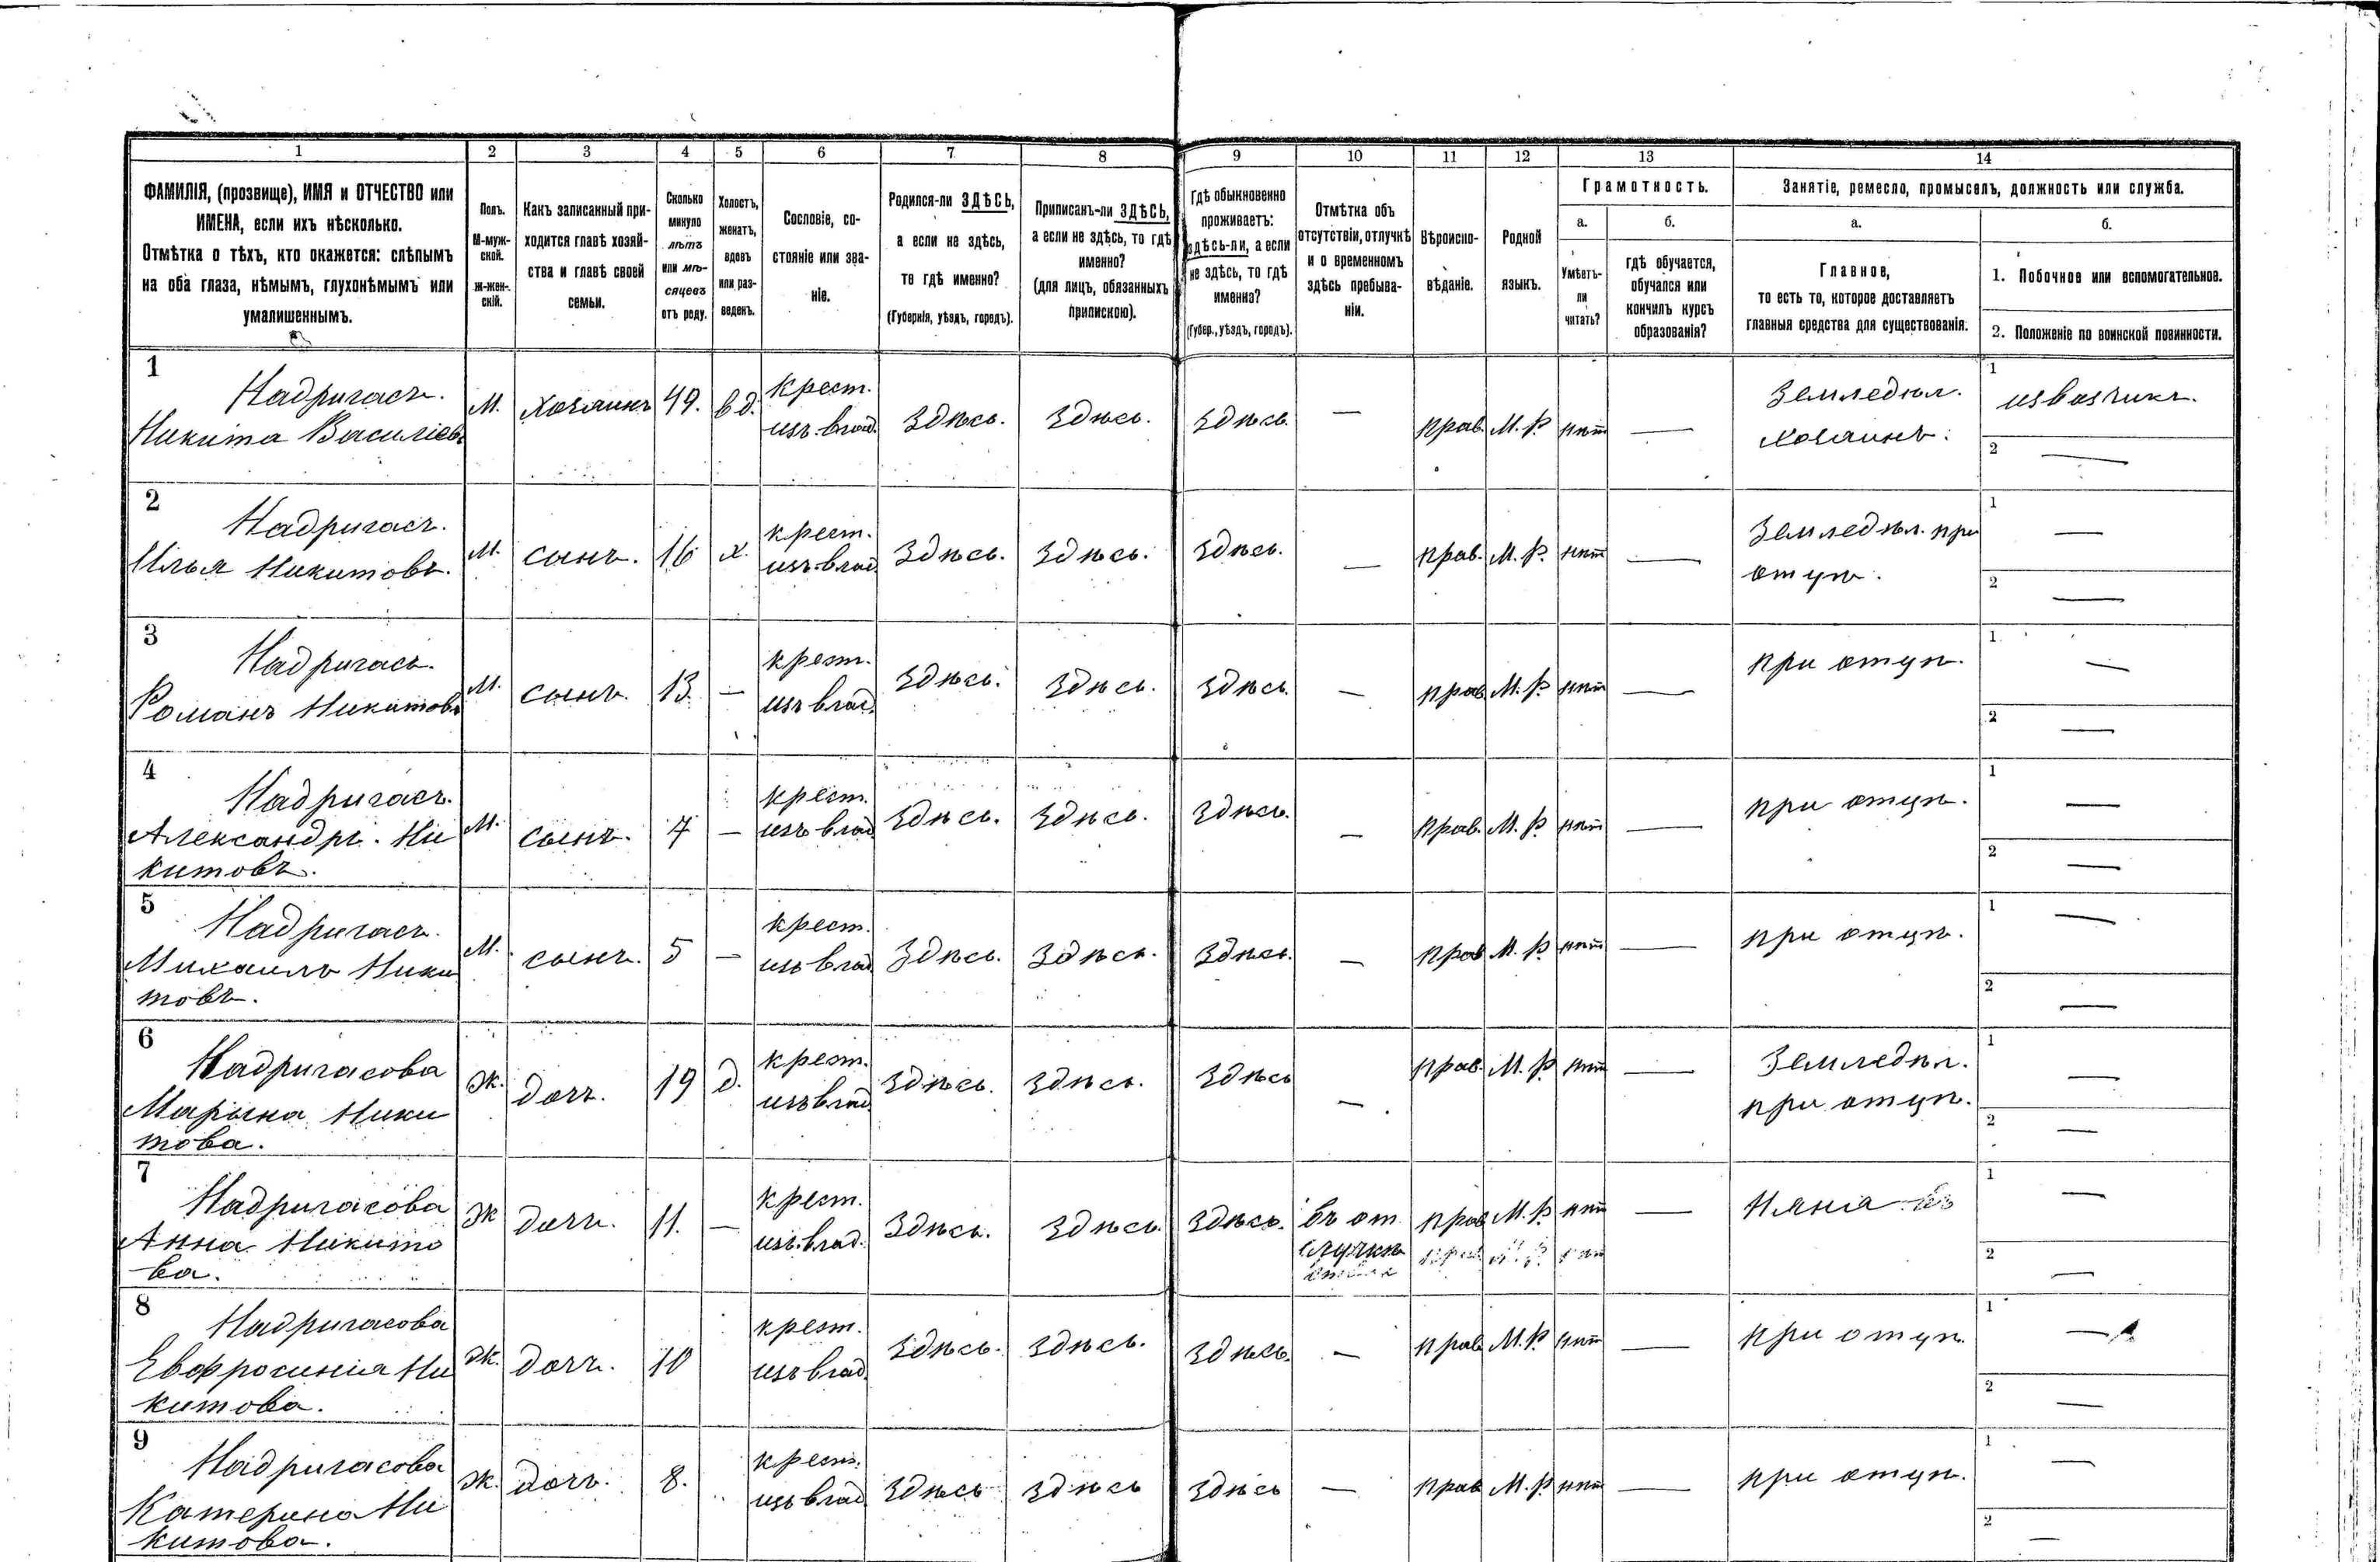 1 2 3 4 5 6 7 8 9 10 11 12 13 14
ФАМИЛІЯ, (прозвище), ИМЯ и ОТЧЕСТВО или
ИМЕНА, если ихъ нѣсколько.
Отмѣтка о тѣхъ, кто окажется: слѣпымъ
на оба глаза, нѣмымъ, глухонѣмымъ или
умалишеннымъ.
Полъ.
М-муж-
ской.
Ж-жен-
скій.
Какъ записанный при-
ходится главѣ хозяй-
ства и главѣ своей
семьи.
Сколько
минуло
лѣтъ
или мѣ-
сяцевъ
отъ роду.
Холостъ,
женатъ,
вдовъ
или раз-
веденъ.
Сословіе, со-
стояніе или зва-
ніе.
Родился-ли ЗДѢСЬ,
а если не здѣсь,
то гдѣ именно?
(Губернія, уѣздъ, городъ).
Приписанъ-ли ЗДѢСЬ,
а если не здѣсь, то гдѣ
именно?
(для лицъ, обязанныхъ
припискою).
Гдѣ обыкновенно
проживаетъ:
здѣсь-ли, а если
не здѣсь, то гдѣ
именно?
(Губер., уѣздъ, городъ).
Отмѣтка объ
отсутствіи, отлучкѣ
и о временномъ
здѣсь пребыва-
ніи.
Вѣроиспо-
вѣданіе.
Родной
языкъ.
Грамотность.
а.
Умѣетъ-
ли
читать?
б.
гдѣ обучается,
обучался или
кончилъ курсъ
образованія?
Занятіе, ремесло, промыселъ, должность или служба.
а.
Главное,
то есть то, которое доставляетъ
главныя средства для существованія.
б.
1. Побочное или вспомогательное.
2. Положеніе по воинской повинности.
1
Надригасъ.
Никита Василіев
М. Хозяинъ 49. вд. крест.
изъ влад. Здѣсь. Здѣсь. Здѣсь. — прав. М. Р. нѣт — Земледѣл.
хозяинъ.
1 извозчикъ.
2 —
2
Надригасъ.
Илья Никитовъ.
М. сынъ. 16 х. крест.
изъ влад Здѣсь. Здѣсь. Здѣсь. — прав. М. Р. нѣт — Земледѣл. при
отцѣ.
1 —
2 —
3
Надригасъ.
Романъ Никитовъ
М. сынъ. 13. — крест.
изъ влад. Здѣсь. Здѣсь. Здѣсь. — прав М. Р. нѣт — при отцѣ.
1 —
2 —
4
Надригасъ.
Александръ. Ни
китовъ.
М. сынъ. 7 — крест.
изъ влад Здѣсь. Здѣсь. Здѣсь. — прав. М. Р нѣт — при отцѣ.
1 —
2 —
5
Надригасъ.
Михаилъ Ники
товъ.
М. сынъ. 5 — крест.
изъ влад Здѣсь. Здѣсь. Здѣсь. — прав М. Р нѣт — при отцѣ.
1 —
2 —
6
Надригасова
Марына Ники
това.
Ж. дочь. 19 д. крест.
изъ влад Здѣсь. Здѣсь. Здѣсь — прав. М. Р нѣт — Земледѣл.
при отцѣ.
1 —
2 —
7
Надригасова
Анна Никито
ва.
Ж дочь. 11. — крест.
изъ влад. Здѣсь. Здѣсь. Здѣсь. въ от
лучкѣ
прав М. Р нѣт — Няня
1 —
2 —
8
Надригасова
Евфросинія Ни
китова.
Ж. дочь. 10 крест.
изъ влад. Здѣсь. Здѣсь. Здѣсь. — прав М. Р нѣт — при отцѣ.
1 —
2 —
9
Надригасова
Катерина Ни
китова.
Ж. дочь. 8. крест.
изъ влад Здѣсь Здѣсь Здѣсь — прав М. Р нѣт — при отцѣ.
1 —
2 —